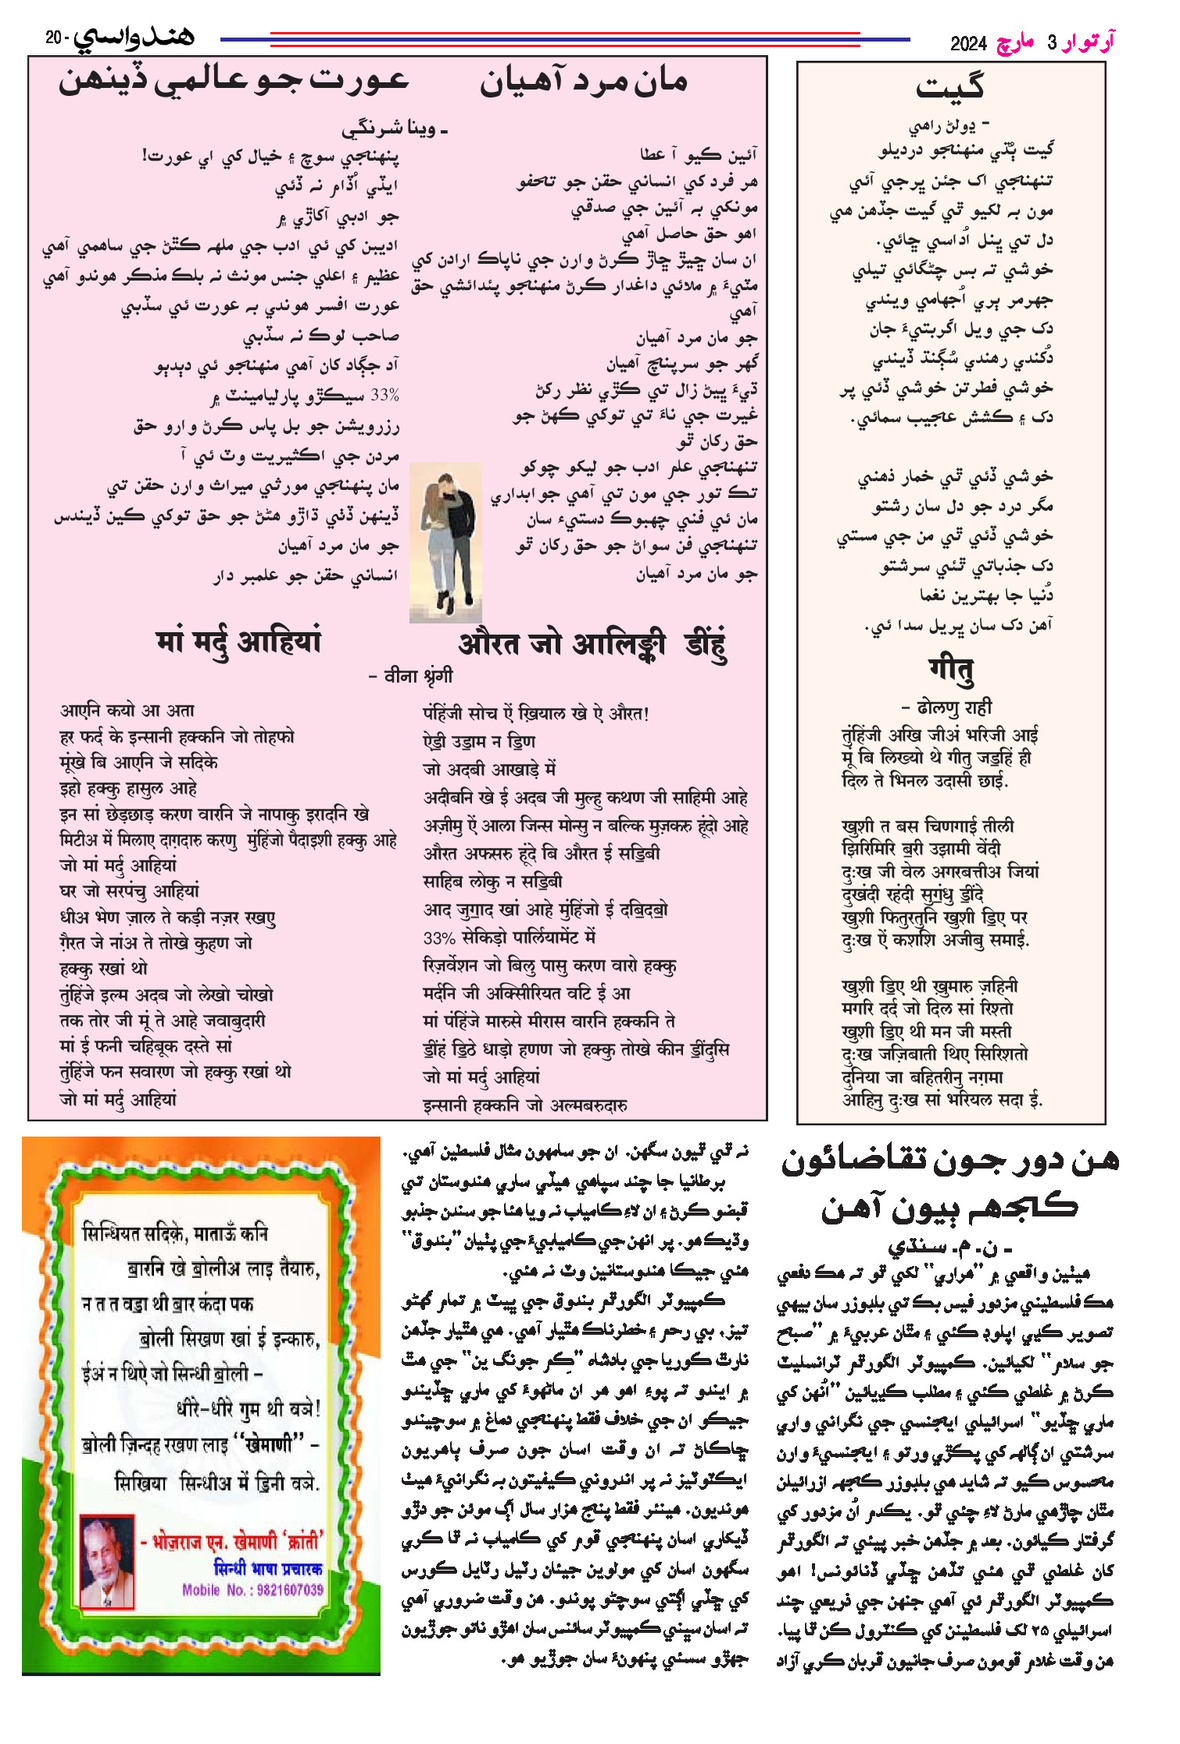 آرتوار 3 مارچ 2024
هندواسي
20 -
گيت
- ڍولڻ راهي
گيت ٻُڌي منهنجو درديلو
تنهنجي اک جئن ڀرجي آئي
مون به لکيو ٿي گيت جڏهن هي
دل تي ڀنل اُداسي ڇائي.
خوشي ته بس چڻگائي تيلي
جهرمر ٻري اُجهامي ويندي
دک جي ويل اگربتيءَ جان
دُکندي رهندي سُڳنڌ ڏيندي
خوشي فطرتن خوشي ڏئي پر
دک ۽ ڪشش عجيب سمائي.
خوشي ڏئي ٿي خمار ذهني
مگر درد جو دل سان رشتو
خوشي ڏئي ٿي من جي مستي
دک جذباتي ٿئي سرشتو
دُنيا جا بهترين نغما
آهن دک سان ڀريل سدا ئي.
गीतु
- ढोलणु राही
तुंहिंजी अखि जीअं भरिजी आई
मूं बि लिख्यो थे गीतु जड॒हिं ही
दिल ते भिनल उदासी छाई.
खुशी त बस चिणगाई तीली
झिरिमिरि ब॒री उझामी वेंदी
दुःख जी वेल अगरबत्तीअ जियां
दुखंदी रहंदी सुगं॒धु डीं॒दे
खुशी फितुरतुनि खुशी डि॒ए पर
दुःख ऐं कशशि अजीबु समाई.
खुशी डि॒ए थी ख़ुमारु ज़हिनी
मगरि दर्द जो दिल सां रिश्तो
खुशी डि॒ए थी मन जी मस्ती
दुःख जज़िबाती थिए सिरिशतो
दुनिया जा बहितरीनु नग़मा
आहिनु दुःख सां भरियल सदा ई.
مان مرد آهيان
عورت جو عالمي ڏينهن
- وينا شرنگي
آئين ڪيو آ عطا
هر فرد کي انساني حقن جو تحفو
مونکي به آئين جي صدقي
اهو حق حاصل آهي
ان سان ڇيڙ ڇاڙ ڪرڻ وارن جي ناپاڪ ارادن کي
مٽيءَ ۾ ملائي داغدار ڪرڻ منهنجو پئدائشي حق
آهي
جو مان مرد آهيان
گهر جو سرپنچ آهيان
ڌيءَ ڀيڻ زال تي ڪڙي نظر رکڻ
غيرت جي ناءَ تي توکي ڪهڻ جو
حق رکان ٿو
تنهنجي علم ادب جو ليکو چوکو
تڪ تور جي مون تي آهي جوابداري
مان ئي فني چهبوڪ دستيءَ سان
تنهنجي فن سواڻ جو حق رکان ٿو
جو مان مرد آهيان
پنهنجي سوچ ۽ خيال کي اي عورت!
ايڏي اُڏام نه ڏئي
جو ادبي آکاڙي ۾
اديبن کي ئي ادب جي ملهه ڪٿڻ جي ساهمي آهي
عظيم ۽ اعلي جنس مونث نه بلڪ مذڪر هوندو آهي
عورت افسر هوندي به عورت ئي سڏبي
صاحب لوڪ نه سڏبي
آد جڳاد کان آهي منهنجو ئي دٻدٻو
33% سيڪڙو پارليامينٽ ۾
رزرويشن جو بل پاس ڪرڻ وارو حق
مردن جي اڪثيريت وٽ ئي آ
مان پنهنجي مورثي ميراث وارن حقن تي
ڏينهن ڏٺي ڌاڙو هڻڻ جو حق توکي ڪين ڏيندس
جو مان مرد آهيان
انساني حقن جو علمبر دار
मां मर्दु आहियां
औरत जो आलिङ्की डींहुं
- वीना श्रृंगी
आएनि कयो आ अता
हर फर्द के इन्सानी हक्कनि जो तोहफो
मूंखे बि आएनि जे सदिके
इहो हक्कु हासुल आहे
इन सां छेड़छाड़ करण वारनि जे नापाकु इरादनि खे
मिटीअ में मिलाए दाग़दारु करणु मुंहिंजो पैदाइशी हक्कु आहे
जो मां मर्दु आहियां
घर जो सरपंचु आहियां
धीअ भेण ज़ाल ते कड़ी नज़र रखणु
ग़ैरत जे नांअ ते तोखे कुहण जो
हक्कु रखां थो
तुंहिंजे इल्म अदब जो लेखो चोखो
तक तोर जी मूं ते आहे जवाबुदारी
मां ई फनी चहिबूक दस्ते सां
तुंहिंजे फन सवारण जो हक्कु रखां थो
जो मां मर्दु आहियां
पंहिंजी सोच ऐं ख़ियाल खे ऐ औरत!
ऐडी॒ उडा॒म न डि॒ण
जो अदबी आखाड़े में
अदीबनि खे ई अदब जी मुल्हु कथण जी साहिमी आहे
अज़ीमु ऐं आला जिन्स मोन्सु न बल्कि मुज़करु हूंदो आहे
औरत अफसरु हूंदे बि औरत ई सडि॒बी
साहिब लोकु न सडि॒बी
आद जुगा॒द खां आहे मुंहिंजो ई दबि॒दबो॒
33% सेकिड़ो पार्लियामेंट में
रिज़र्वेशन जो बिलु पासु करण वारो हक्कु
मर्दनि जी अक्सिरियत वटि ई आ
मां पंहिंजे मारुसे मीरास वारनि हक्कनि ते
डीं॒हं डि॒ठे धाड़ो हणण जो हक्कु तोखे कीन डीं॒दुसि
जो मां मर्दु आहियां
इन्सानी हक्कनि जो अल्मबरुदारु
هن دور جون تقاضائون
ڪجهہ ٻيون آهن
- ن. م. سنڌي
هيٺين واقعي ۾ ”هراري“ لکي ٿو ته هڪ دفعي
هڪ فلسطيني مزدور فيس بڪ تي بلبوزر سان بيهي
تصوير ڪڍي اپلوڊ ڪئي ۽ مٿان عربيءَ ۾ ”صبح
جو سلام“ لکيائين. ڪمپيوٽر الگورٿم ٽرانسليٽ
ڪرڻ ۾ غلطي ڪئي ۽ مطلب ڪڍيائين ”اُنهن کي
ماري ڇڏيو“ اسرائيلي ايجنسي جي نگراني واري
سرشتي ان ڳالهه کي پڪڙي ورتو ۽ ايجنسيءَ وارن
محسوس ڪيو ته شايد هي بلبوزر ڪجهہ ازرائيلن
مٿان چاڙهي مارڻ لاءِ چئي ٿو. يڪدم اُن مزدور کي
گرفتار ڪيائون. بعد ۾ جڏهن خبر پيئي ته الگورٿم
کان غلطي ٿي هئي تڏهن ڇڏي ڏنائونس! اهو
ڪمپيوٽر الگورٿم ئي آهي جنهن جي ذريعي چند
اسرائيلي ۲۵ لک فلسطينن کي ڪنٽرول ڪن ٿا پيا.
هن وقت غلام قومون صرف جانيون قربان ڪري آزاد
نه ٿي ٿيون سگهن. ان جو سامهون مثال فلسطين آهي.
برطانيا جا چند سپاهي هيڏي ساري هندوستان تي
قبضو ڪرڻ ۽ ان لاءِ ڪامياب نه ويا هئا جو سندن جذبو
وڌيڪ هو. پر انهن جي ڪاميابيءَ جي پٺيان ”بندوق“
هئي جيڪا هندوستانين وٽ نه هئي.
ڪمپيوٽر الگورٿم بندوق جي ڀيٽ ۾ تمام گهڻو
تيز، بي رحم ۽ خطرناڪ هٿيار آهي. هي هٿيار جڏهن
نارٿ ڪوريا جي بادشاه ”ڪِم جونگ ين“ جي هٿ
۾ ايندو ته پوءِ اهو هر ان ماڻهوءَ کي ماري ڇڏيندو
جيڪو ان جي خلاف فقط پنهنجي دماغ ۾ سوچيندو
ڇاڪاڻ ته ان وقت اسان جون صرف ٻاهريون
ايڪٽوٽيز نه پر اندروني ڪيفيتون به نگرانيءَ هيٺ
هونديون. هينئر فقط پنج هزار سال اڳ موئن جو دڙو
ڏيکاري اسان پنهنجي قوم کي ڪامياب نه ٿا ڪري
سگهون اسان کي مولوين جيئان رٽيل رٽايل ڪورس
کي ڇڏي اڳتي سوچڻو پوندو. هن وقت ضروري آهي
ته اسان سڀني ڪمپيوٽر سائنس سان اهڙو ناتو جوڙيون
جهڙو سسئي پنهونءَ سان جوڙيو هو.
सिन्धियत सदिक़े, माताऊँ कनि
बा॒रनि खे बो॒लीअ लाइ तैयारु,
न त त वडा॒ थी बा॒र कंदा पक
बो॒ली सिखण खां ई इन्कारु,
ईअं न थिऐ जो सिन्धी बो॒ली -
धीरे-धीरे गुम थी वञे!
बो॒ली ज़िन्दह रखण लाइ “खेमाणी” -
सिखिया सिन्धीअ में डि॒नी वञे.
- भोज़राज एन. खेमाणी ‘क्रांती’
सिन्धी भाषा प्रचारक
Mobile No. : 9821607039